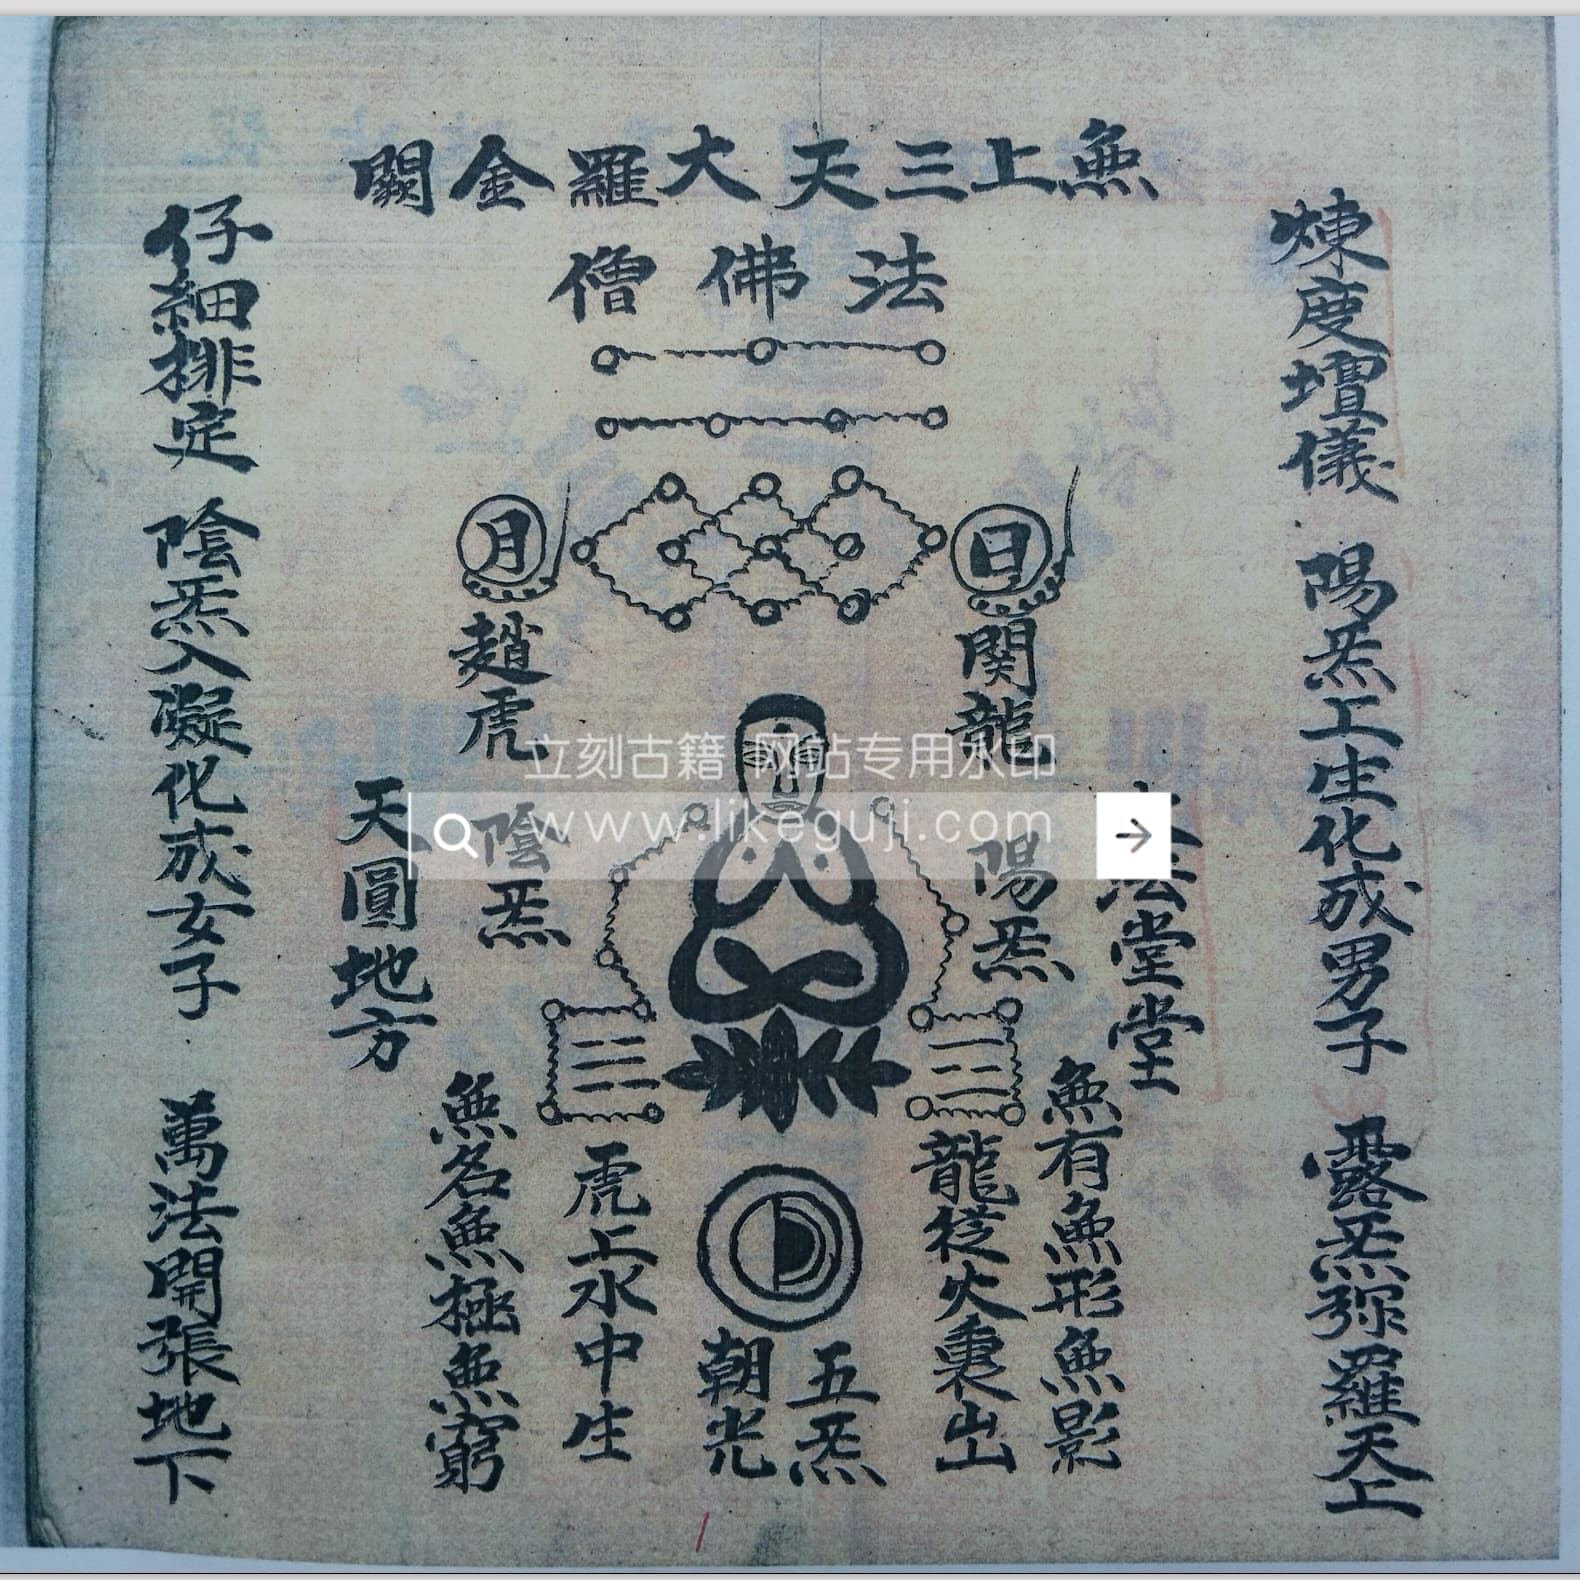 無上三天大羅金闕
法佛僧
煉度壇儀 陽炁上生化成男子 露炁弥羅天上
法堂堂
無有無形無影
日
関龍
陽炁
龍從火裏出
五炁
朝光
月
趙虎
陰炁
虎上水中生
無名無極無窮
天圓地方
仔細排定 陰炁入凝化成女子 萬法開張地下
立刻古籍 网站专用水印
www.likeguji.com